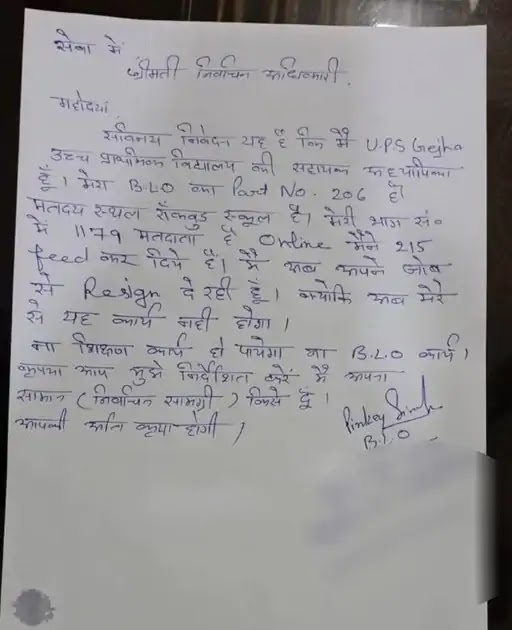 सेवा में
श्रीमती निर्वाचन अधिकारी,
महोदया
सविनय निवेदन यह है कि मैं U.P.S Gejha
उच्च प्राथमिक विद्यालय की सहायक अध्यापिका
हूँ। मेरा B.L.O का Part No. 206 है।
मतदय स्थल रॉकवुड स्कूल है। मेरी भाग सं०
में 1179 मतदाता है Online मैंने 215
feed कर दिये है। मैं अब अपने जॉब
से Resign दे रही हूँ। क्योकि अब मेरे
से यह कार्य नही होगा।
ना शिक्षण कार्य हो पायेगा ना B.L.O कार्य।
कृपया आप मुझे निर्देशित करें मैं अपना
सामान (निर्वाचन सामग्री) किसे दूँ।
आपकी अति कृपा होगी।
Pinkey Singh
B.L.O